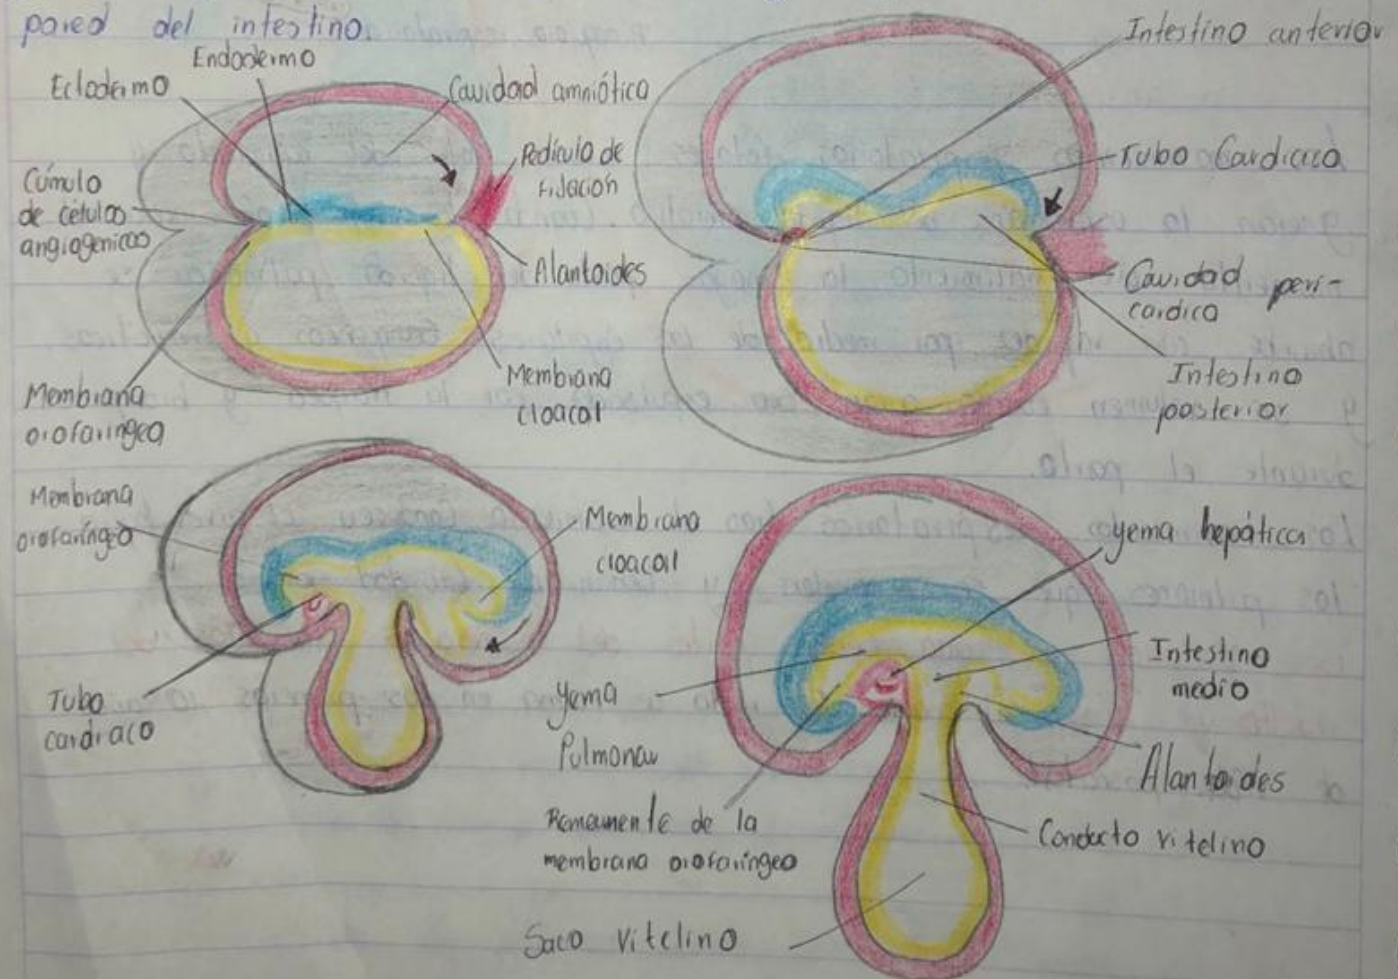 pared del intestino.
Endodermo
Ectodermo
Cavidad amniótica
Pedículo de
fijación
Cúmulo
de células
angiogenicas
Alantoides
Membrana
cloacal
Membrana
orofaringea
Intestino anterior
Tubo Cardiaco
Cavidad peri-
cardica
Intestino
posterior
Membrana
orofaríngeo
Membrana
cloacal
Tubo
cardiaco
yema hepática
Intestino
medio
Yema
Pulmonar
Alantoides
Remanente de la
membrana orofaríngeo
Conducto vitelino
Saco Vitelino